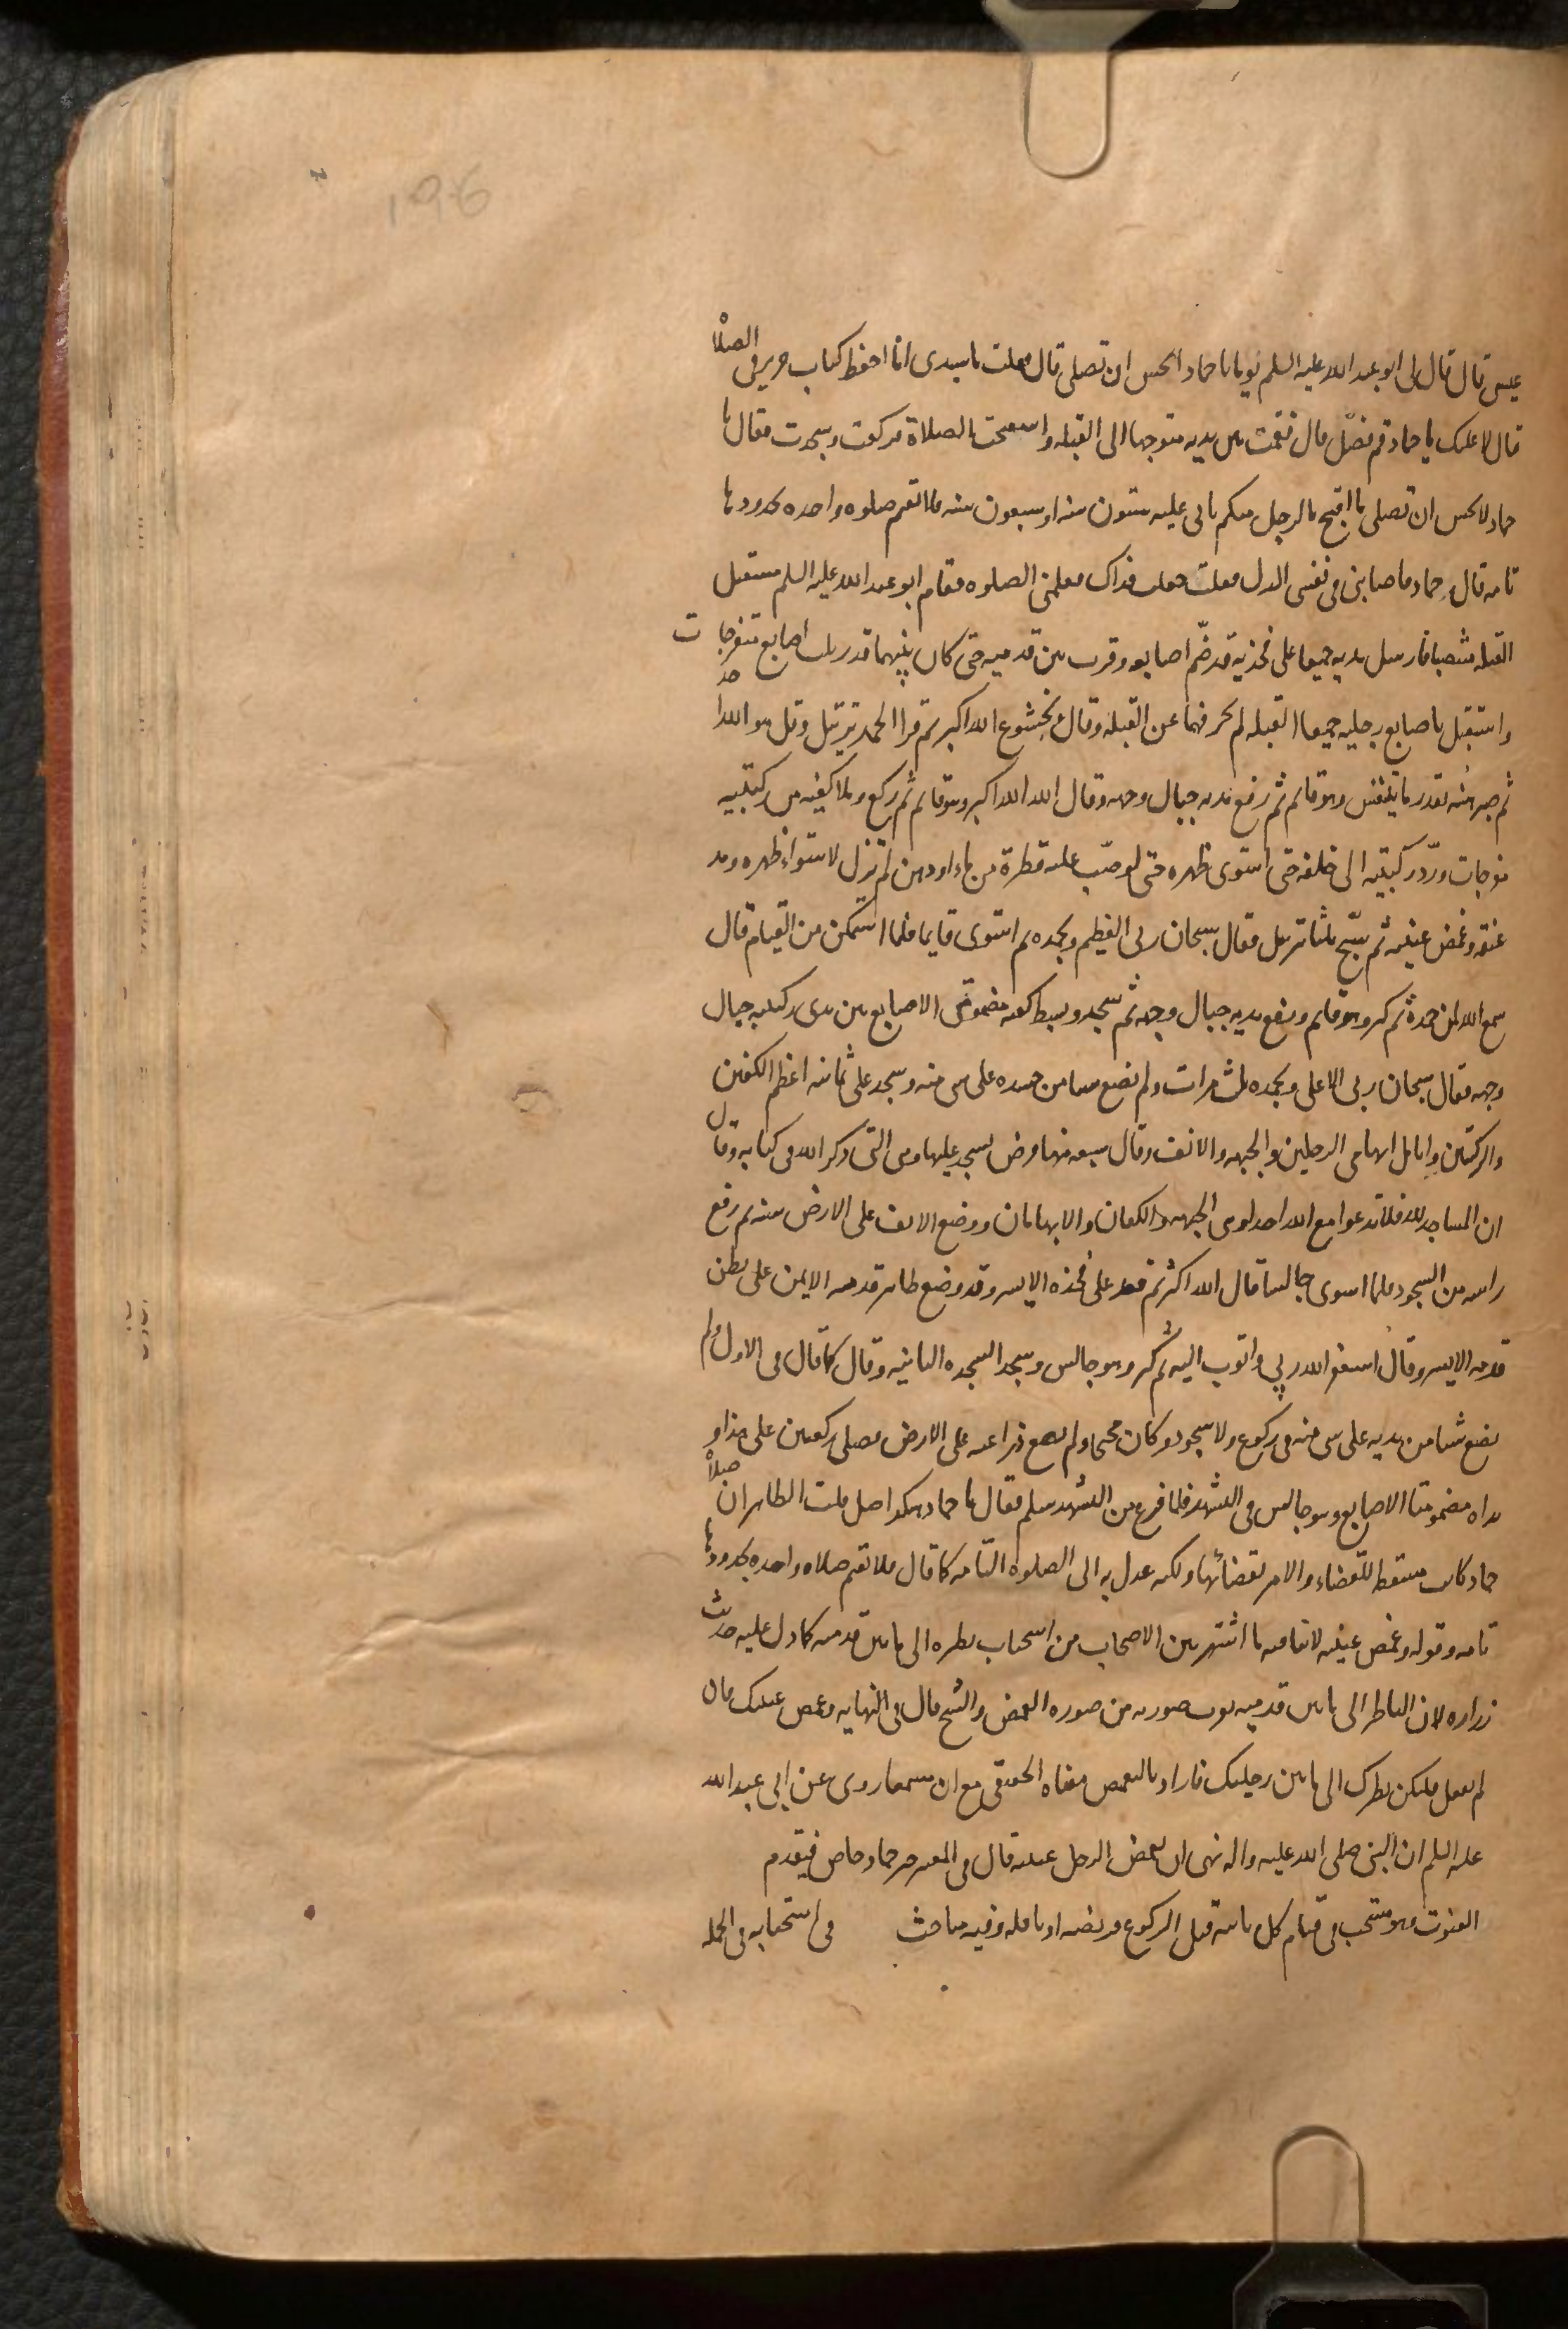 196
عيسى قال قال لى ابو عبد الله عليه السلم يوما يا حماد اتحسن ان تصلى قال فقلت يا سيدى انا احفظ كتاب حريز فى الصلاة
قال لا عليك يا حماد قم فصلّ قال فقمت بين يديه متوجها الى القبله واستفتحت الصلاة فركعت وسجدت فقال يا
حماد لا تحسن ان تصلى ما اقبح بالرجل منكم ياتى عليه ستون سنه او سبعون سنه فلا تقيم صلوه واحده بحدودها
تامه قال حماد فاصابنى فى نفسى الذل فقلت جعلت فداك فعلمنى الصلوه فقام ابو عبد الله عليه السلم مستقبل
القبله منتصبا فارسل يديه جميعا على فخذيه قد ضمّ اصابعه وقرب بين قدميه حتى كان بينهما قدر ثلث اصابع منفرجات
واستقبل باصابع رجليه جميعا القبله لم يحرفهما عن القبله وقال بخشوع الله اكبر ثم قرا الحمد بترتيل وقل هو الله احد
ثم صبر هنيه بقدر ما يتنفس وهو قائم ثم رفع يديه حيال وجهه وقال الله الله اكبر وهو قائم ثم ركع وملا كفيه من ركبتيه
منفرجات وردّ ركبتيه الى خلفه حتى استوى ظهره حتى لو صبّ عليه قطرة من ماء او دهن لم تزل لاستواء ظهره ومد
عنقه وغمض عينيه ثم سبّح ثلثا بترتيل فقال سبحان ربى العظيم وبحمده ثم استوى قايما فلما استمكن من القيام قال
سمع الله لمن حمده ثم كبر وهو قائم ورفع يديه حيال وجهه ثم سجد وبسط كفيه مضمومتى الاصابع بين يدى ركبتيه حيال
وجهه فقال سبحان ربى الاعلى وبحمده ثلث مرات ولم يضع شيا من جسده على شى منه وسجد على ثمانيه اعظم الكفين
والركبتين وانامل ابهامى الرجلين والجبهه والانف وقال سبعه منها فرض يسجد عليها وهى التى ذكر الله فى كتابه وقال
ان المساجد لله فلا تدعوا مع الله احدا وهى الجبهه والكفان والابهامان ووضع الانف على الارض سنه ثم رفع
راسه من السجود فلما استوى جالسا قال الله اكبر ثم قعد على فخذه الايسر وقد وضع ظاهر قدمه الايمن على بطن
قدمه الايسر وقال استغفر الله ربى واتوب اليه ثم كبر وهو جالس وسجد السجده الثانيه وقال كما قال فى الاول ولم
يضع شيا من بدنه على شى منه فى ركوع ولا سجود وكان مجنحا ولم يضع ذراعيه على الارض فصلى ركعتين على هذا و
يداه مضمومتا الاصابع وهو جالس فى التشهد فلما فرغ من التشهد سلم فقال يا حماد هكذا صل قلت الظاهر ان صلاة
حماد كانت مسقطه للقضاء والا لامر بقضائها ولكنه عدل به الى الصلوه التامه كما قال فلا تقيم صلاه واحده بحدودها
تامه وقوله وغمض عينيه لا ينافيه ما اشتهر بين الاصحاب من استحباب نظره الى ما بين قدميه كما دل عليه حديث
زراره لان الناظر الى ما بين قدميه يقرب صورته من صوره المغمض والشيخ قال فى النهايه وغمض عينيك فان
لم تفعل فليكن نظرك الى ما بين رجليك فاراد بالتغميض معناه الحقيقى مع ان مسمعا روى عن ابى عبد الله
عليه السلم ان النبى صلى الله عليه واله نهى ان يغمض الرجل عينيه قال فى المعتبر خبر حماد خاص فيقدم
القنوت وهو مستحب فى قيام كل ثانيه قبل الركوع فريضه او نافله وفيه مباحث فى استحبابه فى الجمله